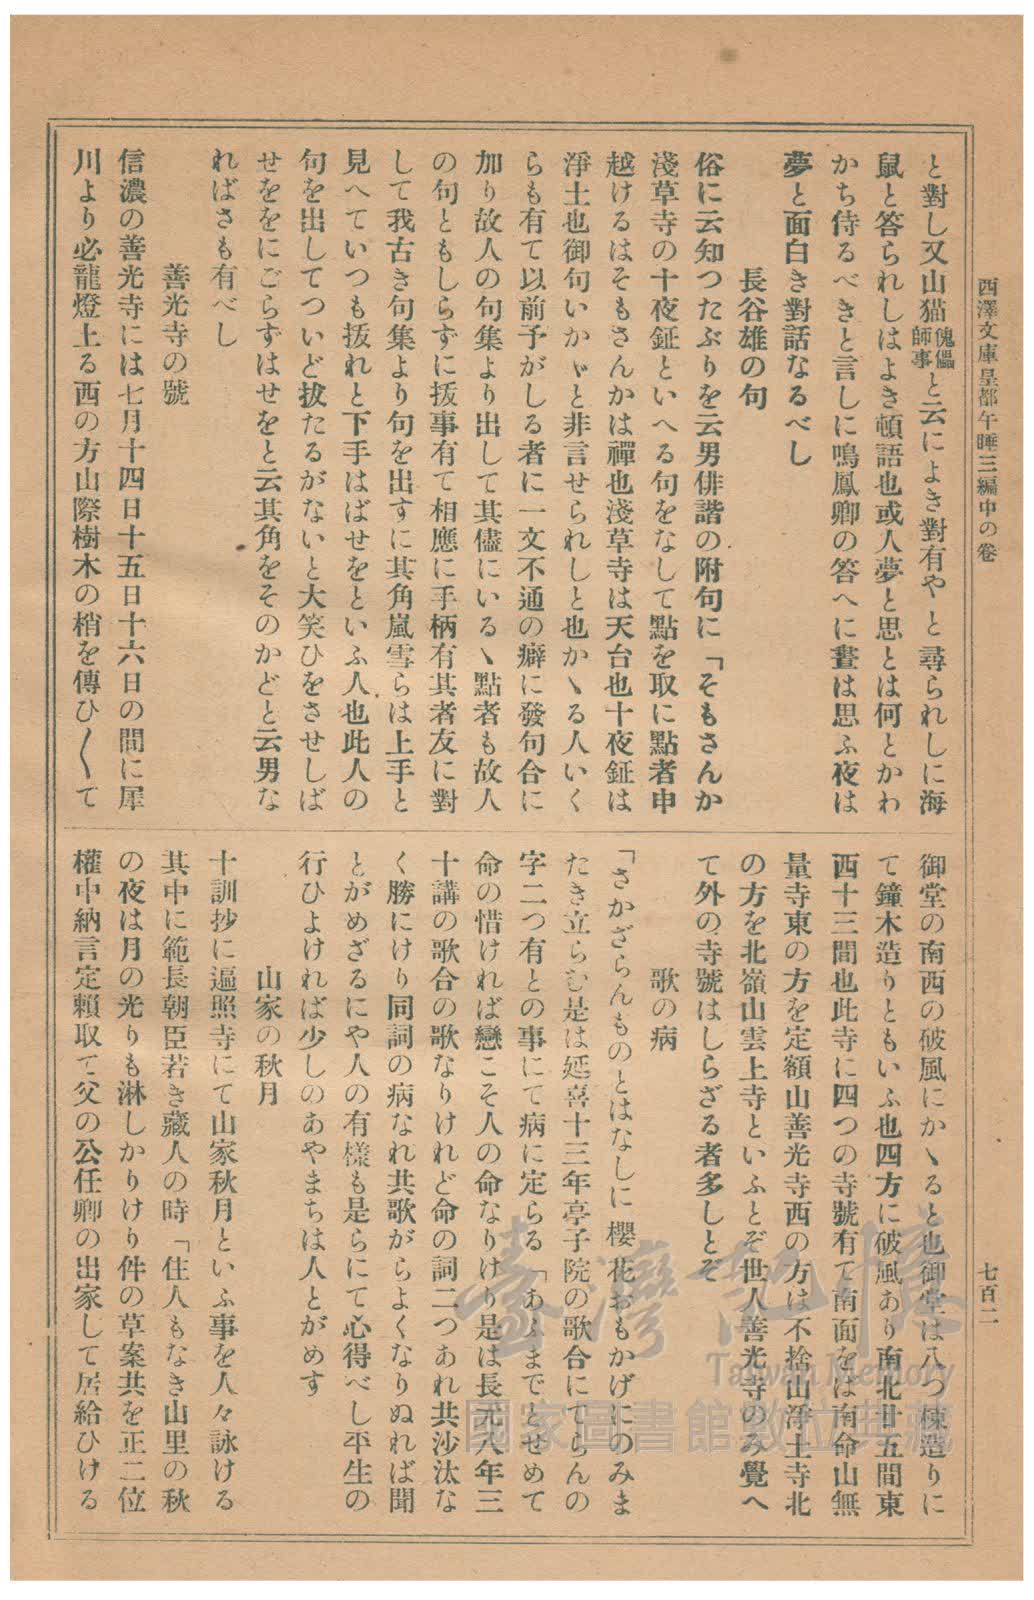 西澤文庫皇都午睡三編中の卷
七百二
と對し又山猫傀儡師事と云によき對有やと尋られしに海
鼠と答られしはよき頓語也或人夢と思とは何とかわ
かち侍るべきと言しに鳴鳳卿の答へに晝は思ふ夜は
夢と面白き對話なるべし
長谷雄の句
俗に云知つたぶりを云男俳諧の附句に「そもさんか
淺草寺の十夜鉦といへる句をなして點を取に點者申
越けるはそもさんかは禪也淺草寺は天台也十夜鉦は
淨土也御句いかゞと非言せられしと也かゝる人いく
らも有て以前予がしる者に一文不通の癖に發句合に
加り故人の句集より出して其儘にいるゝ點者も故人
の句ともしらずに拔事有て相應に手柄有其者友に對
して我古き句集より句を出すに其角嵐雪らは上手と
見へていつも拔れと下手はばせをといふ人也此人の
句を出してついど拔たるがないと大笑ひをさせしば
せををにごらずはせをと云其角をそのかどと云男な
ればさも有べし
善光寺の號
信濃の善光寺には七月十四日十五日十六日の間に犀
川より必龍燈上る西の方山際樹木の梢を傳ひ〱て
御堂の南西の破風にかゝると也御堂は八つ棟造りに
て鐘木造りともいふ也四方に破風あり南北廿五間東
西十三間也此寺に四つの寺號有て南面をば南命山無
量寺東の方を定額山善光寺西の方は不捨山淨土寺北
の方を北嶺山雲上寺といふとぞ世人善光寺のみ覺へ
て外の寺號はしらざる者多しとぞ
歌の病
「さかざらんものとはなしに櫻花おもかげにのみま
たき立らむ是は延喜十三年亭子院の歌合にてらんの
字二つ有との事にて病に定らる「あふまでとせめて
命の惜ければ戀こそ人の命なりけり是は長元八年三
十講の歌合の歌なりけれど命の詞二つあれ共沙汰な
く勝にけり同詞の病なれ共歌がらよくなりぬれば聞
とがめざるにや人の有樣も是らにて心得べし平生の
行ひよければ少しのあやまちは人とがめす
山家の秋月
十訓抄に遍照寺にて山家秋月といふ事を人々詠ける
其中に範長朝臣若き藏人の時「住人もなき山里の秋
の夜は月の光りも淋しかりけり件の草案共を正二位
權中納言定賴取て父の公任卿の出家して居給ひける
臺灣記憶
Taiwan Memory
國家圖書館數位典藏